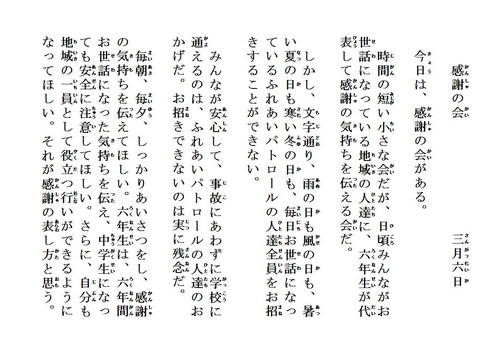 感謝の会　　三月六日
今日は、感謝の会がある。
時間の短い小さな会だが、日頃みんながお
世話になっている地域の人達に、六年生が代
表して感謝の気持ちを伝える会だ。
しかし、文字通り、雨の日も風の日も、暑
い夏の日も寒い冬の日も、毎日お世話になっ
ているふれあいパトロールの人達全員をお招
きすることができない。
みんなが安心して、事故にあわずに学校に
通えるのは、ふれあいパトロールの人達のお
かげだ。お招きできないのは実に残念だ。
毎朝、毎夕、しっかりあいさつをし、感謝
の気持ちを伝えてほしい。六年生は、六年間
お世話になった気持ちを伝え、中学生になっ
ても安全に注意してほしい。さらに、自分も
地域の一員として役立つ行いができるように
なってほしい。それが感謝の表し方と思う。